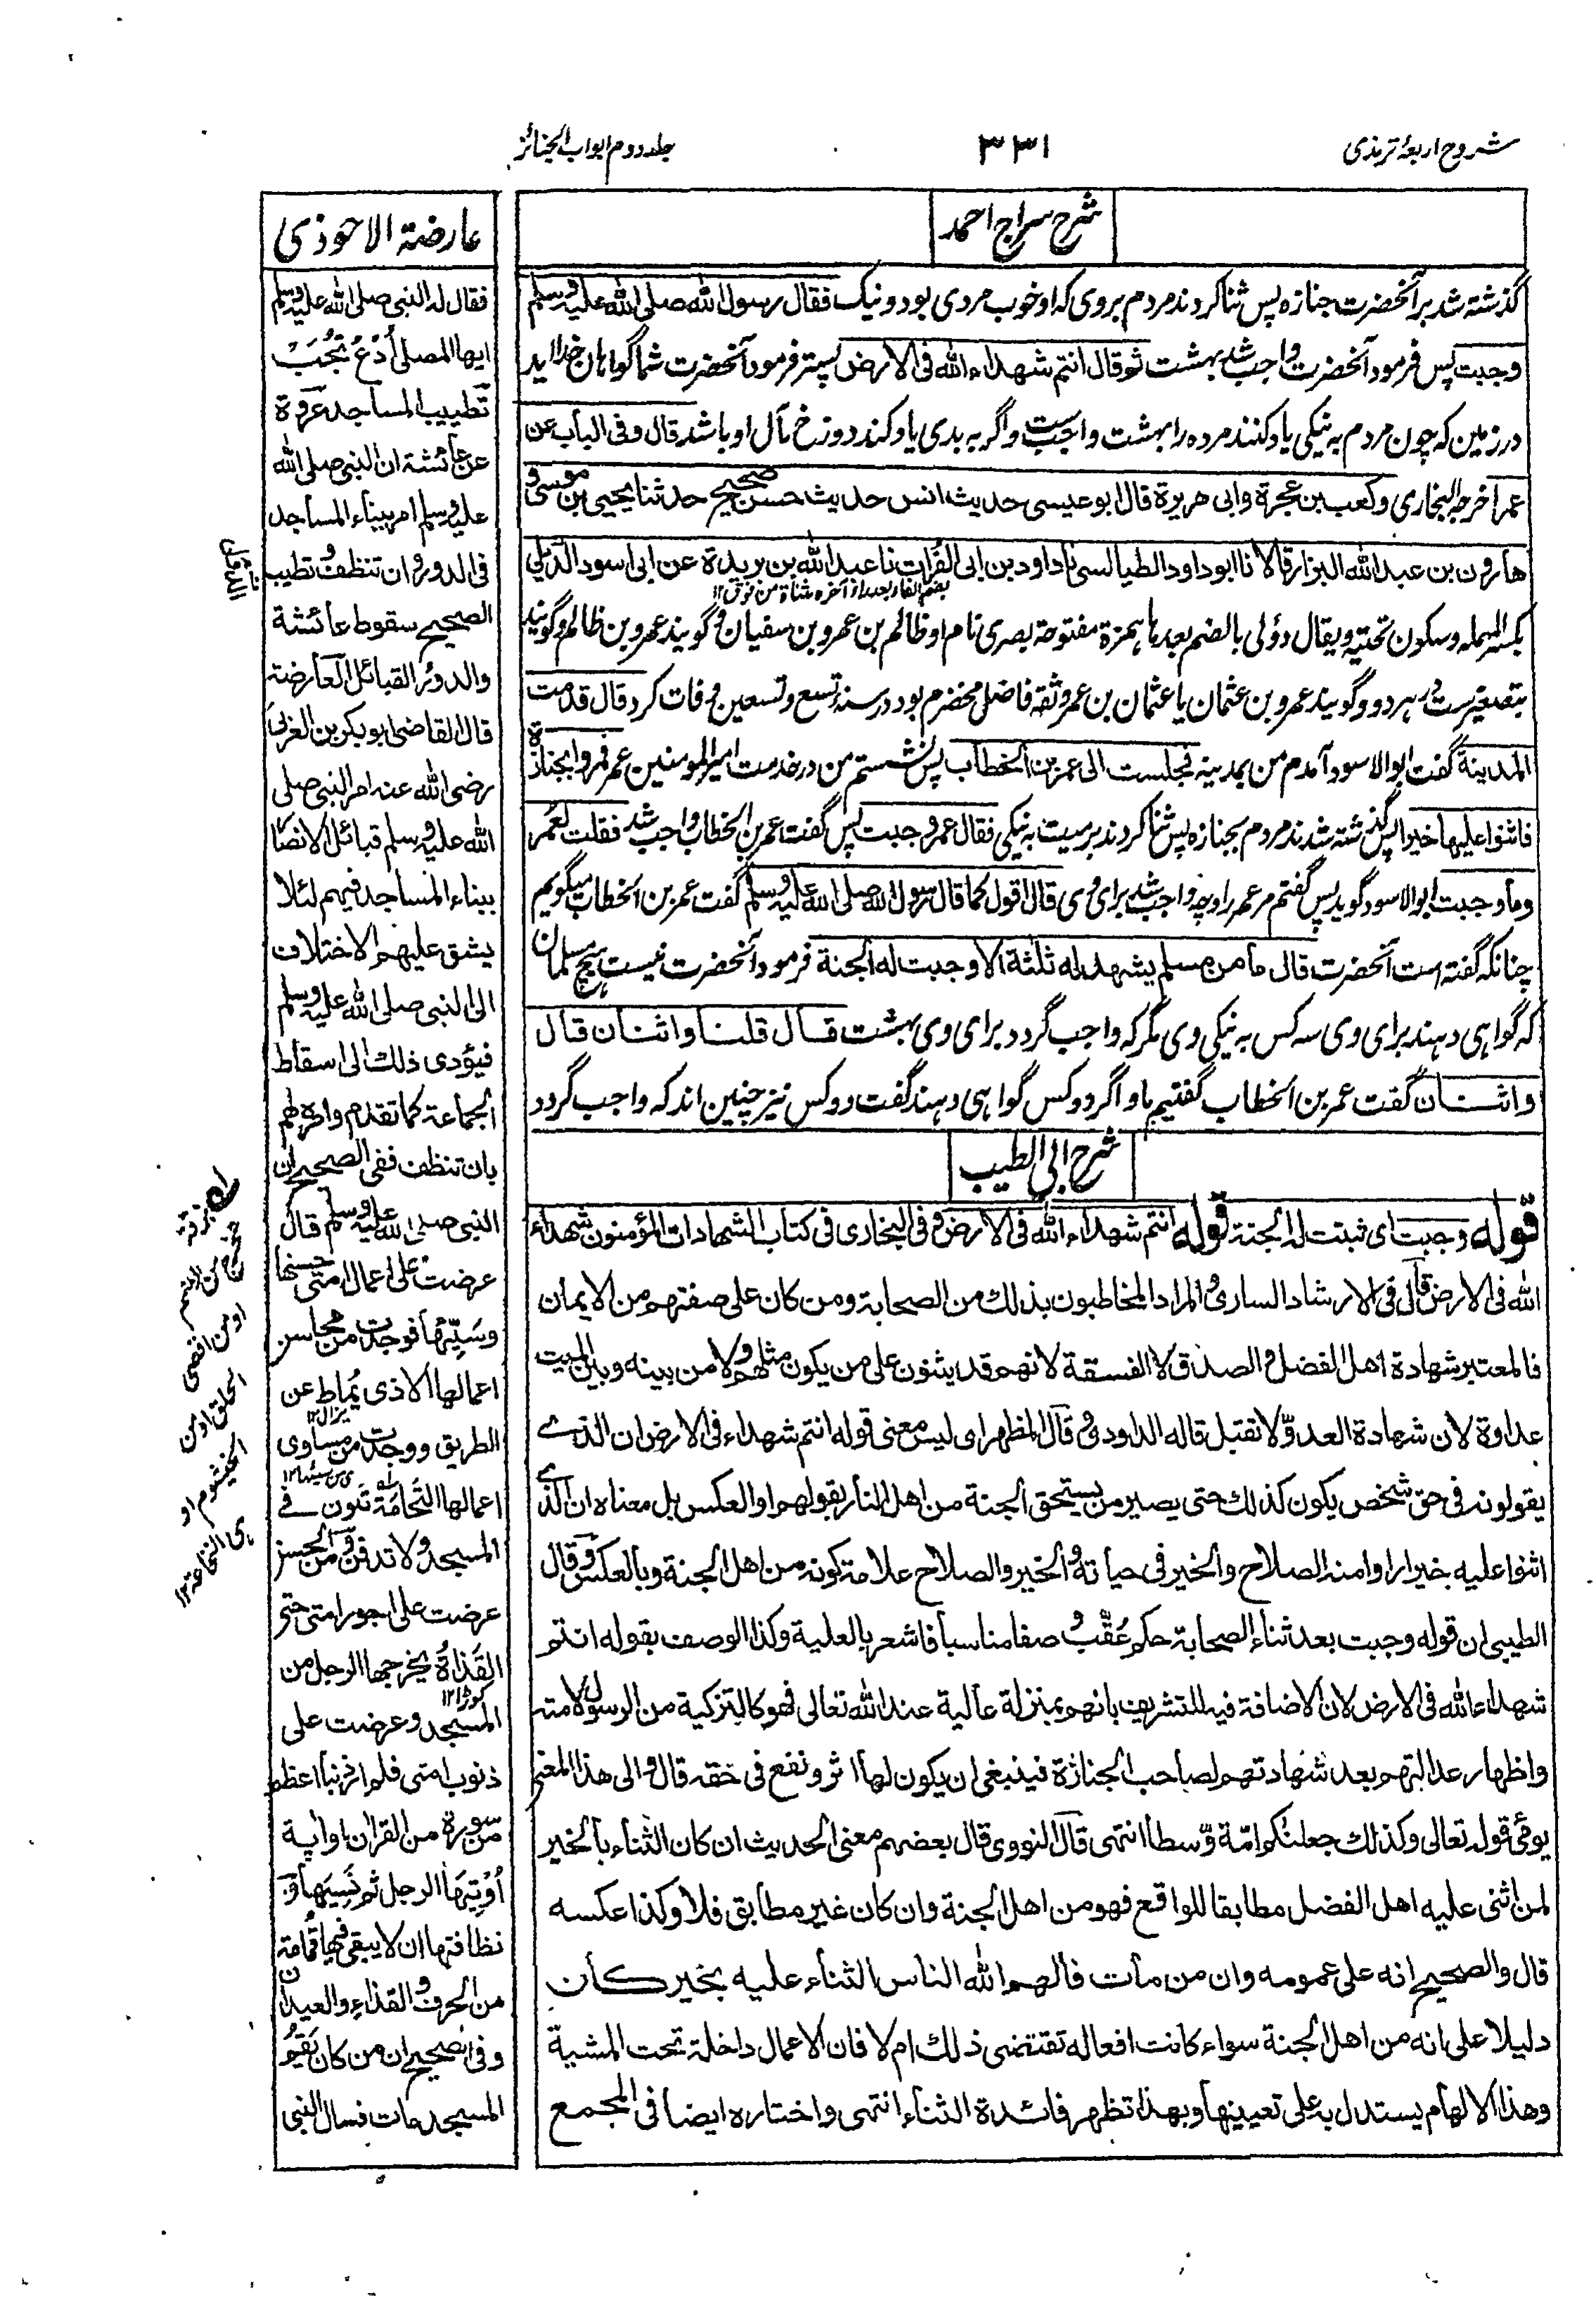 شروح اربعۀ ترمذی
۳۳۱
جلد دوم ابواب الجنائز
شرح سراج احمد
گذشته شد بر آنحضرت جنازه پس ثنا کردند مردم بروی که او خوب مردی بود و نیک فقال رسول الله صلی الله علیه وسلم
وجبت پس فرمود آنحضرت واجب شد بهشت ثم قال انتم شهداء الله فی الارض پستر فرمود آنحضرت شما گواهان خدا اید
در زمین که چون مردم به نیکی یاد کنند مرده را بهشت واجب ست و اگر به بدی یاد کند دوزخ مآل او باشد قال وفی الباب عن
عمر اخرجه البخاری وکعب بن عجرة وابی هریرة قال ابو عیسی حدیث انس حدیث حسن صحیح حدثنا یحیی بن موسی و
هارون بن عبد الله البزار قالا نا ابو داود الطیالسی نا داود بن ابی الفرات نا عبد الله بن بریدة عن ابی اسود الدیلی
بضم الفاء بعد راء آخره مثناة من فوق ۱۲
بکسر المهمله وسکون تحتیه ویقال دؤلی بالضم بعدها همزة مفتوحة بصری نام او ظالم بن عمرو بن سفیان و گویند عمرو بن ظالم و گویند
بتصغیرست در هر دو و گویند عمرو بن عثمان یا عثمان بن عمرو ثقه فاضل مخضرم بود در سنه تسع وتسعین وفات کرد قال قدمت
المدینة گفت ابو الاسود آمدم من بمدینه فجلست الی عمر بن الخطاب پس نشستم من در خدمت امیر المومنین عمر فمروا بجنازة
فاثنوا علیها خیرا پس گذشته شدند مردم بجنازه پس ثنا کردند بر میت به نیکی فقال عمر وجبت پس گفت عمر بن الخطاب واجب شد فقلت لعمر
وما وجبت ابو الاسود گوید پس گفتم مر عمر را و چه واجب شد برای وی قال اقول کما قال رسول الله صلی الله علیه وسلم گفت عمر بن الخطاب میگویم
چنانکه گفته است آنحضرت قال ما من مسلم یشهد له ثلثة الا وجبت له الجنة فرمود آنحضرت نیست هیچ مسلمان
که گواهی دهند برای وی سه کس به نیکی وی مگر که واجب گردد برای وی بهشت قال قلنا واثنان قال
واثنان گفت عمر بن الخطاب گفتیم ما و اگر دو کس گواهی دهند گفت دو کس نیز چنین اند که واجب گردد
شرح ابی الطیب
قوله وجبت ای ثبتت له الجنة قوله انتم شهداء الله فی الارض وفی البخاری فی کتاب الشهادات المؤمنون شهداء
الله فی الارض قال فی الارشاد الساری والمراد المخاطبون بذلك من الصحابة ومن کان علی صفتهم من الایمان
فالمعتبر شهادة اهل الفضل والصدق لا الفسقة لانهم قد یثنون علی من یکون مثلهم ولا من بینه وبین المیت
عداوة لان شهادة العدو لا تقبل قاله الداودی وقال المظهر ای لیس معنی قوله انتم شهداء فی الارض ان الذی
یقولونه فی حق شخص یکون کذلك حتی یصیر من یستحق الجنة من اهل النار بقولهم او العکس بل معناه ان الذی
اثنوا علیه خیرا راوا منه الصلاح والخیر فی حیاته والخیر والصلاح علامة کونه من اهل الجنة وبالعکس وقال
الطیبی ان قوله وجبت بعد ثناء الصحابة حکم عقب وصفا مناسبا فاشعر بالعلیة وکذا الوصف بقوله انتم
شهداء الله فی الارض لان الاضافة فیه للتشریف بانهم بمنزلة عالیة عند الله تعالی فهو کالتزکیة من الرسول لامته
واظهار عدالتهم بعد شهادتهم لصاحب الجنازة فینبغی ان یکون لها اثر ونفع فی حقه قال والی هذا المعنی
یومی قوله تعالی وکذلك جعلنکم امة وسطا انتهی قال النووی قال بعضهم معنی الحدیث ان کان الثناء بالخیر
لمن اثنی علیه اهل الفضل مطابقا للواقع فهو من اهل الجنة وان کان غیر مطابق فلا وکذا عکسه
قال والصحیح انه علی عمومه وان من مات فالهم الله الناس الثناء علیه بخیر کان
دلیلا علی انه من اهل الجنة سواء کانت افعاله تقتضی ذلك ام لا فان الاعمال داخلة تحت المشیة
وهذا الالهام یستدل به علی تعیینها وبهذا تظهر فائدة الثناء انتهی واختاره ایضا فی المجمع
عارضة الاحوذی
فقال له النبی صلی الله علیه وسلم
ایها المصلی أدع تجب
تطییب المساجد عروة
عن عائشة ان النبی صلی الله
علیه وسلم امر ببناء المساجد
فی الدور وان تنظف وتطیب
الصحیح سقوط عائشة
والدور القبائل العارضة
قال القاضی ابو بکر بن العربی
رضی الله عنه امر النبی صلی
الله علیه وسلم قبائل الانصار
ببناء المساجد فیهم لئلا
یشق علیهم الاختلاف
الی النبی صلی الله علیه وسلم
فیؤدی ذلك الی اسقاط
الجماعة کما تقدم وامرهم
بان تنظف ففی الصحیح ان
النبی صلی الله علیه وسلم قال
عرضت علی اعمال امتی حسنها
وسیئها فوجدت من محاسن
اعمالها الاذی یماط عن
الطریق ووجدت من مساوی
اعمالها النخامة تکون فی
المسجد ولا تدفن ومن الحسن
عرضت علی اجور امتی حتی
القذاة یخرجها الرجل من
المسجد وعرضت علی
ذنوب امتی فلم ار ذنبا اعظم
من سورة من القرآن او آیة
أوتیها الرجل ثم نسیها و
نظافتها ان لا یبقی فیها قمامة
من الخرق والقذاء والعیدان
وفی الصحیح ان من کان یقم
المسجد مات فسال النبی